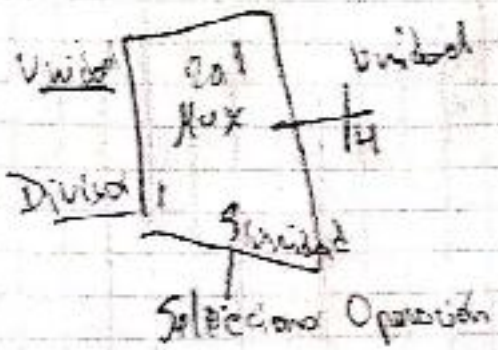 Unidad
2a1
Mux
Unidad
4
Divisa
1
S unidad
Selecciona Operación